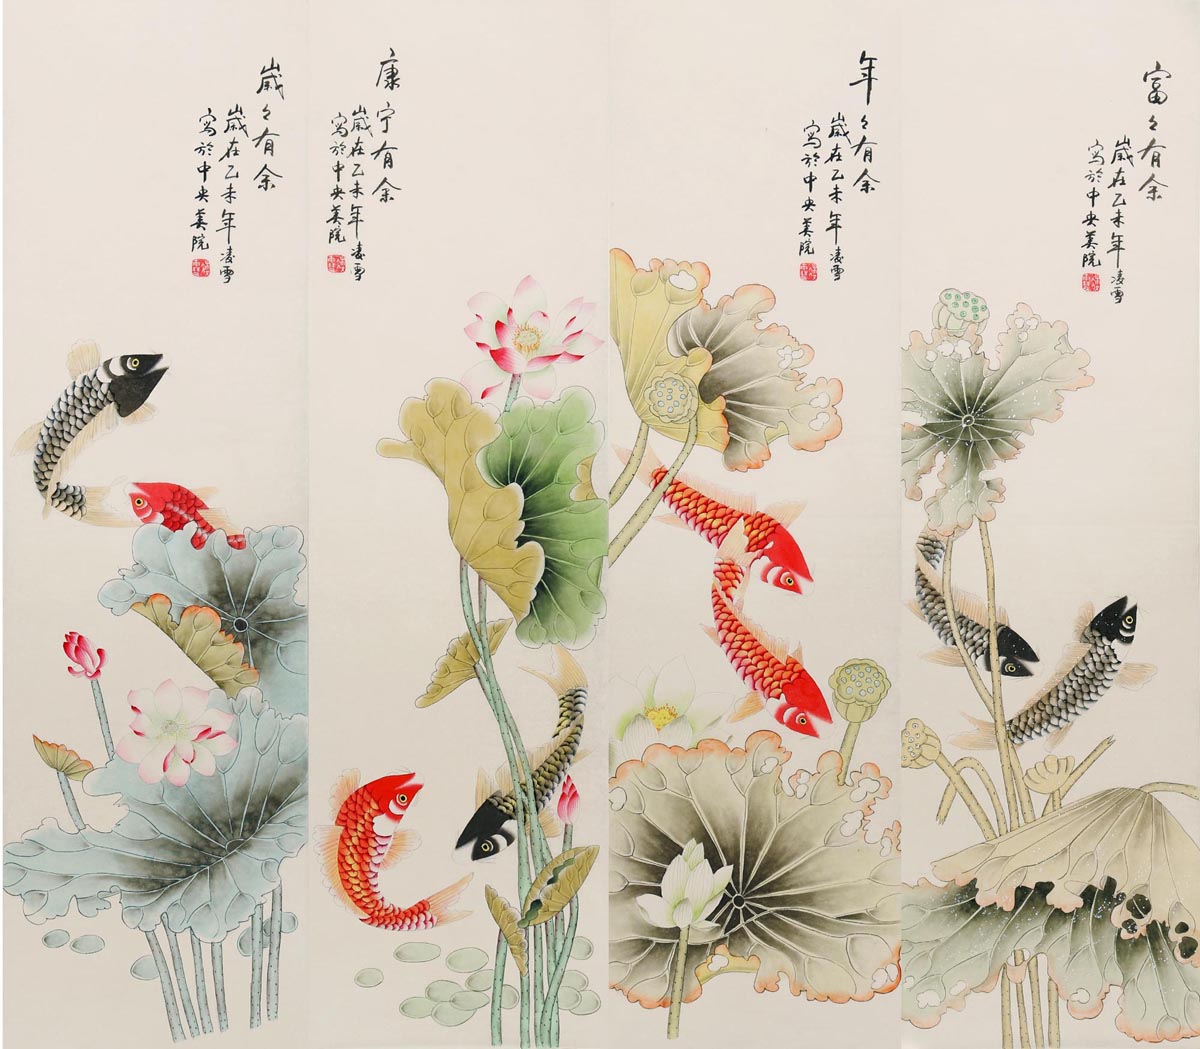 富々有余
歲在乙未年凌雪
寫於中央美院
年々有余
歲在乙未年凌雪
寫於中央美院
康宁有余
歲在乙未年凌雪
寫於中央美院
歲々有余
歲在乙未年凌雪
寫於中央美院